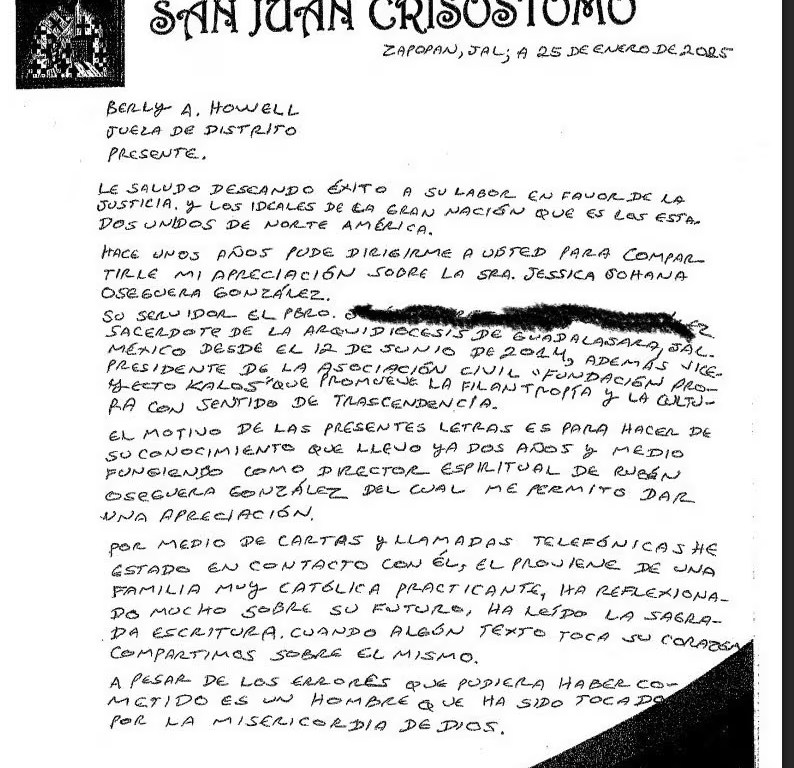 SAN JUAN CRISÓSTOMO
ZAPOPAN, JAL; A 25 DE ENERO DE 2025
BERLY A. HOWELL
JUEZA DE DISTRITO
PRESENTE.
LE SALUDO DESEANDO ÉXITO A SU LABOR EN FAVOR DE LA
JUSTICIA. Y LOS IDEALES DE LA GRAN NACIÓN QUE ES LOS ESTA-
DOS UNIDOS DE NORTE AMÉRICA.
HACE UNOS AÑOS PUDE DIRIGIRME A USTED PARA COMPAR-
TIRLE MI APRECIACIÓN SOBRE LA SRA. JESSICA JOHANA
OSEGUERA GONZÁLEZ.
SU SERVIDOR EL PBRO.
SACERDOTE DE LA ARQUIDIOCESIS DE GUADALAJARA, JAL.
MÉXICO DESDE EL 12 DE JUNIO DE 2014, ADEMÁS VICE-
PRESIDENTE DE LA ASOCIACIÓN CIVIL "FUNDACIÓN PRO-
YECTO KALOS" QUE PROMUEVE LA FILANTROPÍA Y LA CULTU-
RA CON SENTIDO DE TRASCENDENCIA.
EL MOTIVO DE LAS PRESENTES LETRAS ES PARA HACER DE
SU CONOCIMIENTO QUE LLEVO YA DOS AÑOS Y MEDIO
FUNGIENDO COMO DIRECTOR ESPIRITUAL DE RUBÉN
OSEGUERA GONZÁLEZ DEL CUAL ME PERMITO DAR
UNA APRECIACIÓN.
POR MEDIO DE CARTAS Y LLAMADAS TELEFÓNICAS HE
ESTADO EN CONTACTO CON ÉL; EL PROVIENE DE UNA
FAMILIA MUY CATÓLICA PRACTICANTE, HA REFLEXIONA-
DO MUCHO SOBRE SU FUTURO, HA LEÍDO LA SAGRA-
DA ESCRITURA. CUANDO ALGÚN TEXTO TOCA SU CORAZÓN
COMPARTIMOS SOBRE EL MISMO.
A PESAR DE LOS ERRORES QUE PUDIERA HABER CO-
METIDO ES UN HOMBRE QUE HA SIDO TOCADO
POR LA MISERICORDIA DE DIOS.